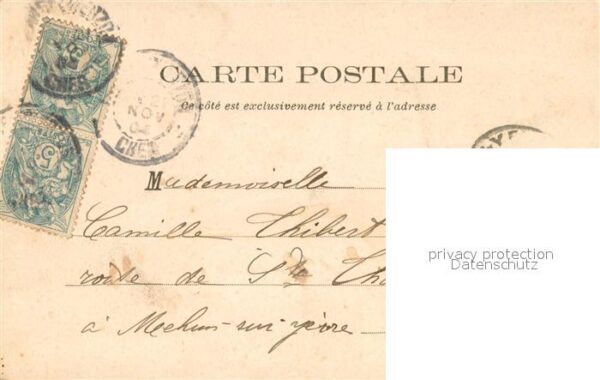 CARTE POSTALE
Ce côté est exclusivement réservé à l'adresse
NOV
04
CHER
5c
Mademoiselle
Camille Thibert
route de Ste
à Mehun-sur-yèvre
privacy protection
Datenschutz